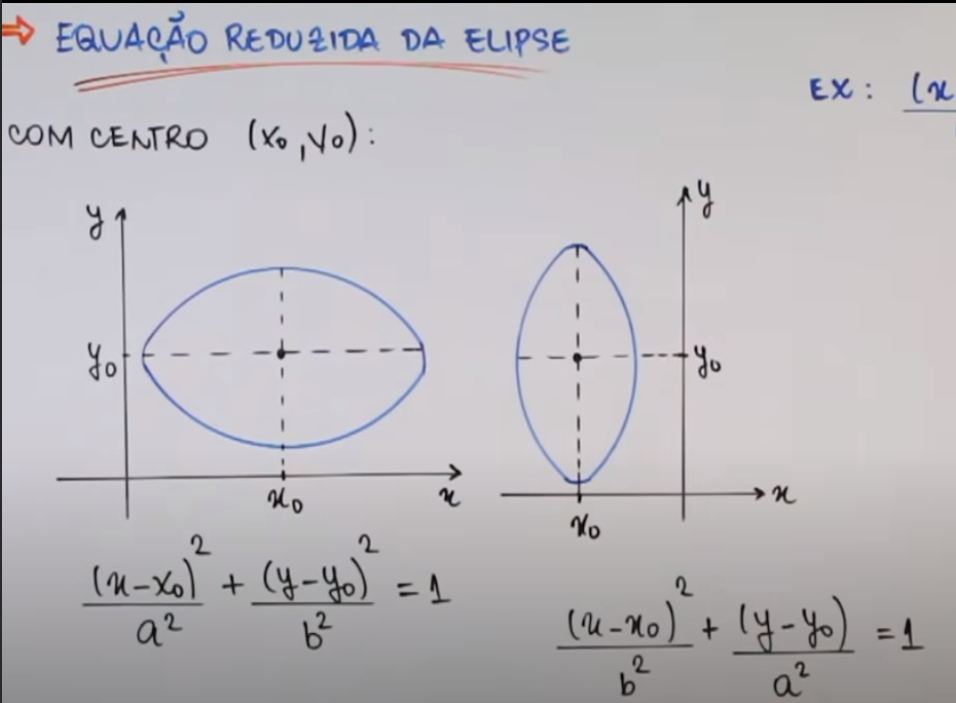 ⇒ EQUAÇÃO REDUZIDA DA ELIPSE
EX: (x
COM CENTRO (x₀, y₀):
y
y₀
x₀
x
y
y₀
x₀
x
(x-x₀)²/a² + (y-y₀)²/b² = 1
(x-x₀)²/b² + (y-y₀)/a² = 1